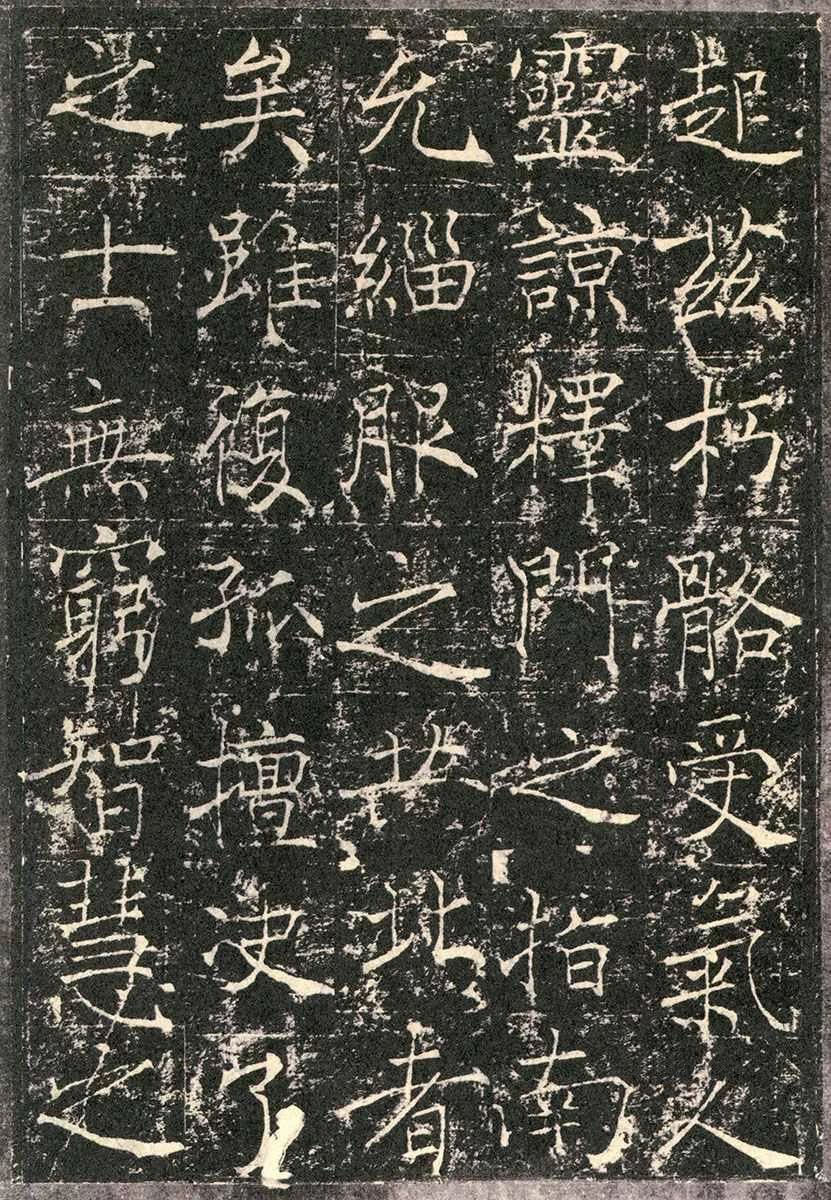 起茲朽骼受氣人
靈諒釋門之指南
允緇服之共北者
矣雖復孤擅決了
是士無窮智慧之